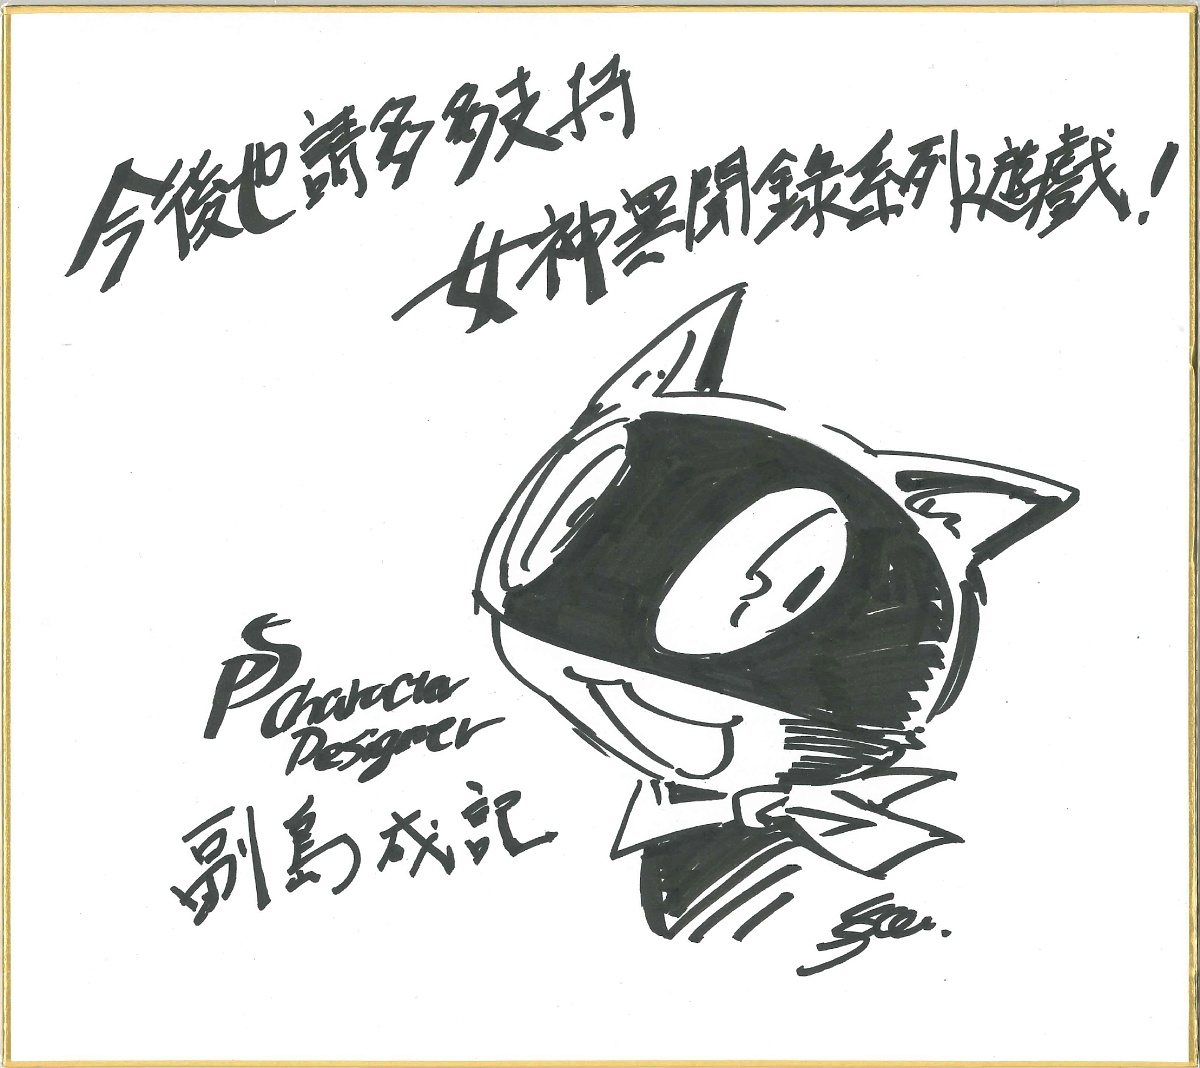 今後也請多多支持
女神異聞錄系列遊戲！
P5
Character
Designer
副島成記